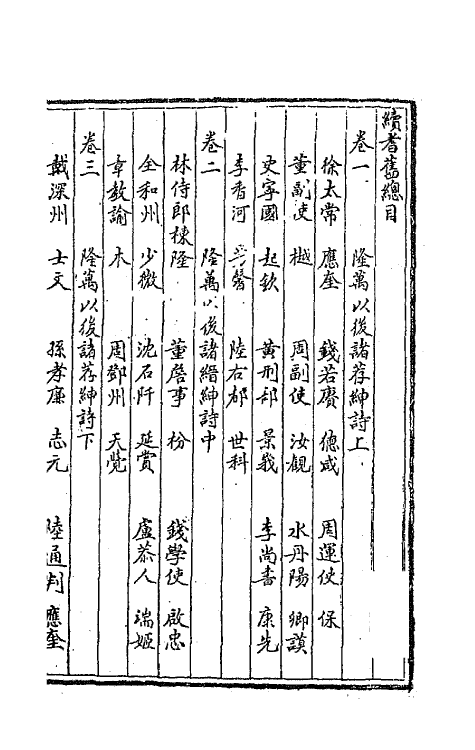 續耆舊總目
卷一 隆萬以後諸荐紳詩上
徐太常 應奎 錢若賡 德咸 周運使 保
董副使 樾 周副使 汝觀 水丹陽 卿謨
史寧國 起欽 黃刑部 景義 李尚書 康先
李香河 陸右都 世科
卷二 隆萬以後諸縉紳詩中
林侍郎棟隆 董詹事 枌 錢學使 啟忠
全和州 少微 沈石阡 延賞 盧恭人 瑞姬
章教諭 木 周鄧州 天覺
卷三 隆萬以後諸荐紳詩下
戴深州 士文 孫孝廉 志元 陸通判 應奎